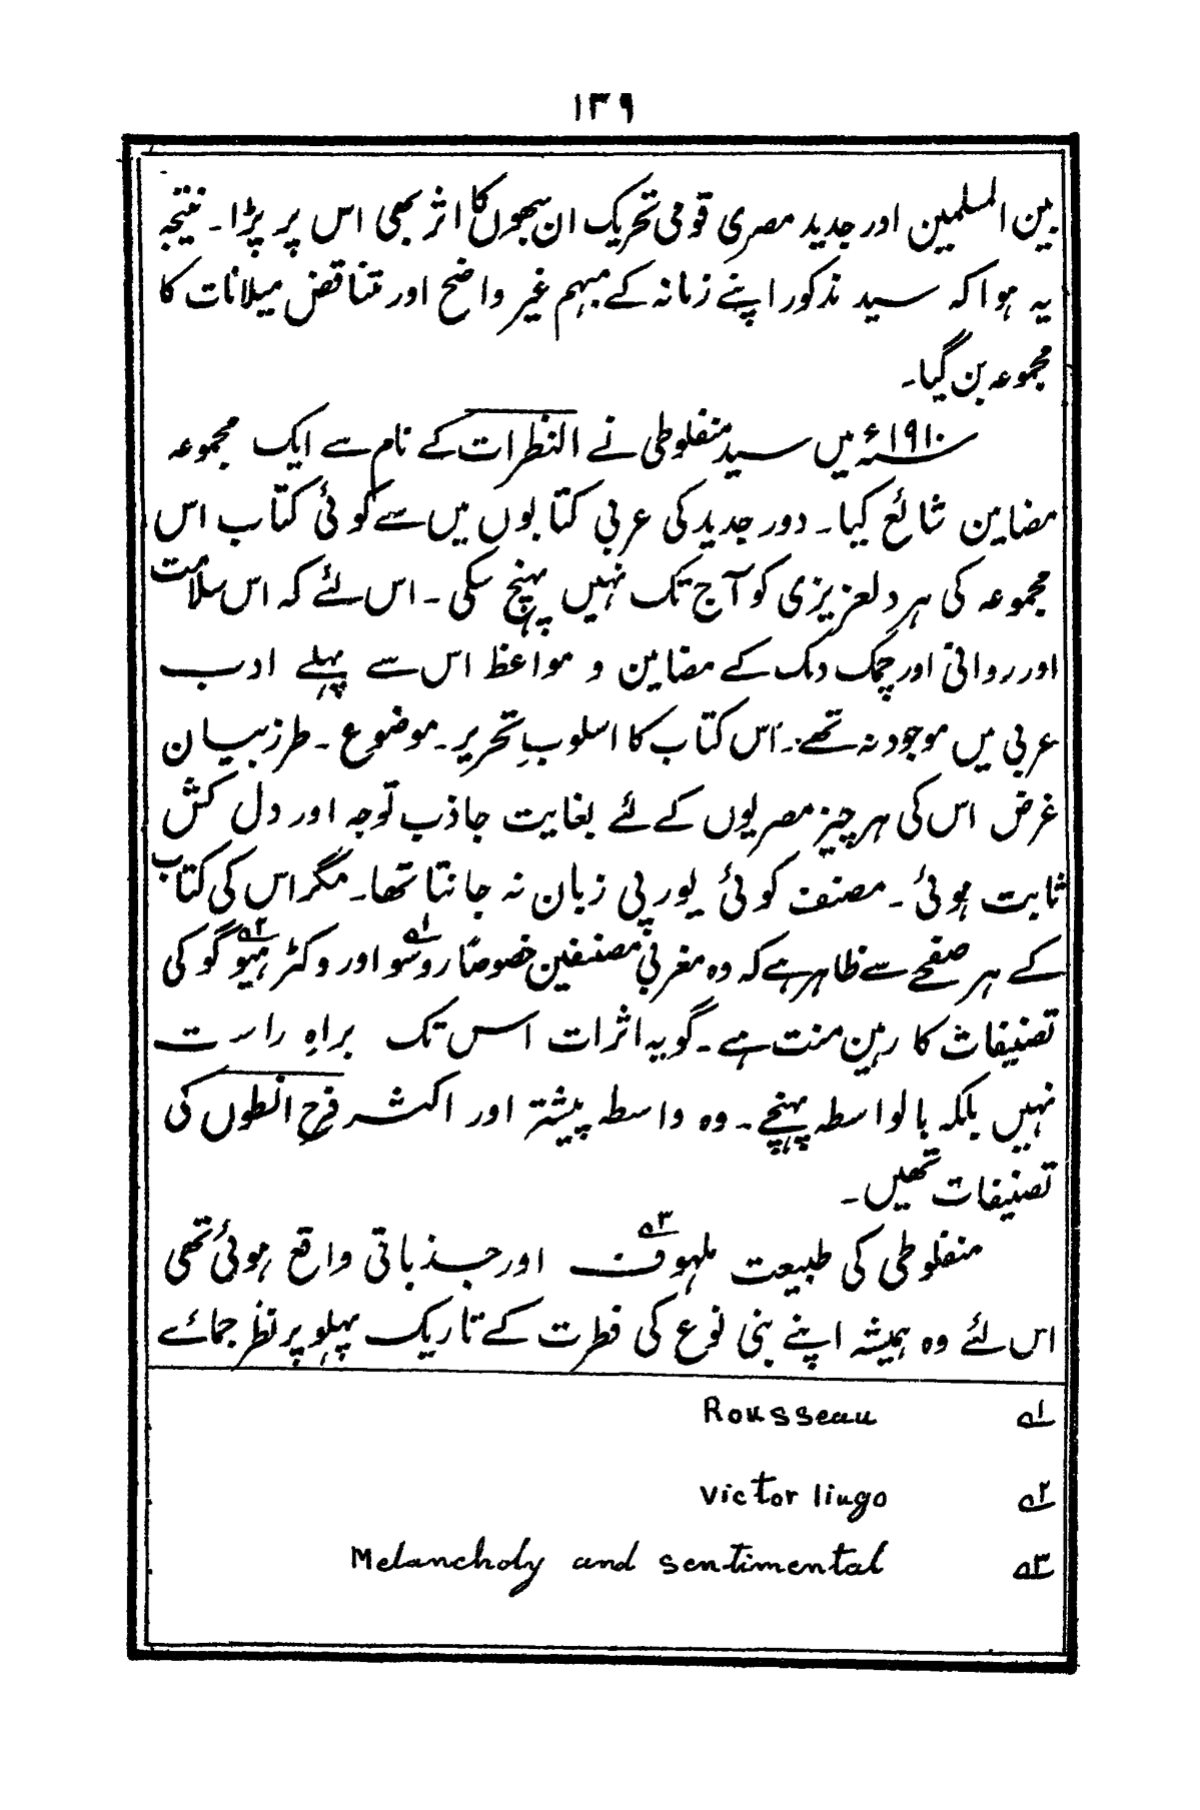 ۱۳۹
بین المسلمین اور جدید مصری قومی تحریک ان سبھوں کا اثر بھی اس پر پڑا۔ نتیجہ
یہ ہوا کہ سید مذکور اپنے زمانہ کے مبہم غیر واضح اور متناقض میلانات کا
مجموعہ بن گیا۔
۱۹۱۰ء میں سید منفلوطی نے النظرات کے نام سے ایک مجموعہ
مضامین شائع کیا۔ دور جدید کی عربی کتابوں میں سے کوئی کتاب اس
مجموعہ کی ہر دلعزیزی کو آج تک نہیں پہنچ سکی۔ اس لئے کہ اس سلاست
اور روانی اور چمک دمک کے مضامین و مواعظ اس سے پہلے ادب
عربی میں موجود نہ تھے۔ اس کتاب کا اسلوبِ تحریر۔ موضوع۔ طرز بیان
غرض اس کی ہر چیز مصریوں کے لئے بغایت جاذب توجہ اور دل کش
ثابت ہوئی۔ مصنف کوئی یورپی زبان نہ جانتا تھا۔ مگر اس کی کتاب
کے ہر صفحے سے ظاہر ہے کہ وہ مغربی مصنفین خصوصاً روسو۱ے اور وکٹر ہیوگو۲ے کی
تصنیفات کا رہین منت ہے۔ گو یہ اثرات اس تک براہِ راست
نہیں بلکہ بالواسطہ پہنچے۔ وہ واسطہ بیشتر اور اکثر فرح انطون کی
تصنیفات تھیں۔
منفلوطی کی طبیعت ملہوف۳ے اور جذباتی واقع ہوئی تھی
اس لئے وہ ہمیشہ اپنے بنی نوع کی فطرت کے تاریک پہلو پر نظر جمائے
۱ے Rousseau
۲ے Victor liugo
۳ے Melancholy and sentimental